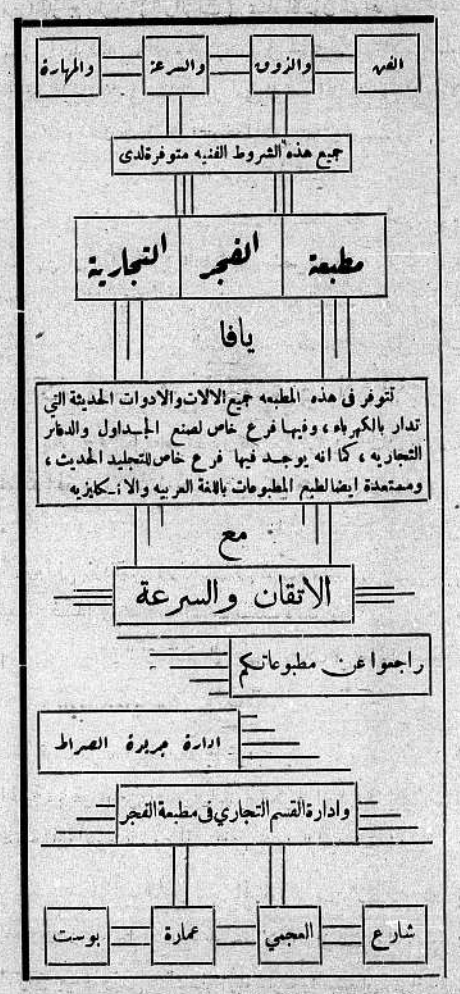 الفن والذوق والسرعة والمهارة
جميع هذه الشروط الفنيه متوفرة لدى
مطبعة الفجر التجارية
يافا
تتوفر فى هذه المطبعه جميع الالات والادوات الحديثة التي
تدار بالكهرباء، وفيها فرع خاص لصنع الجداول والدفاتر
التجاريه، كما انه يوجد فيها فرع خاص للتجليد الحديث،
ومستعدة ايضا لطبع المطبوعات باللغة العربيه والانكليزيه
مع
الاتقان والسرعة
راجعوا عن مطبوعاتكم
ادارة جريدة الصراط
وادارة القسم التجاري فى مطبعة الفجر
شارع العجمي عمارة بوست